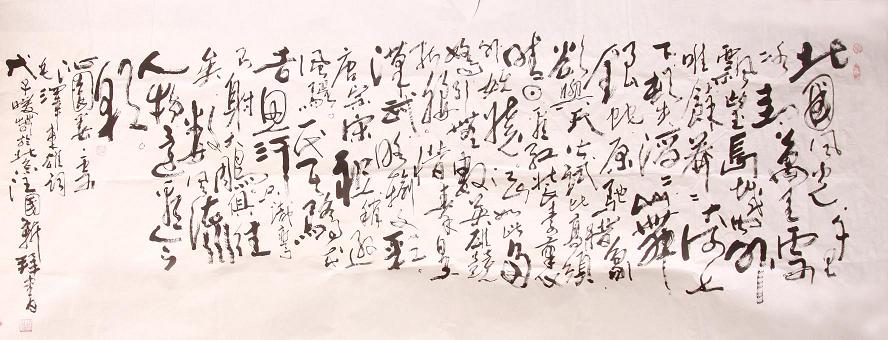 北國風光千里
冰封萬里雪
飄望長城內外
唯餘莽莽大河上
下頓失滔滔山舞
銀蛇原馳蠟象
欲與天公試比高須
晴日看紅裝素裹
分外妖嬈江山如此多
嬌引無數英雄競
折腰惜秦皇
漢武略輸文采
唐宗宋祖稍遜
風騷一代天驕
吉思汗只識彎弓
射雕俱往
矣數風流
人物還看今
朝
沁園春雪
毛澤東雄詞
戊子於北京汪國新拜書